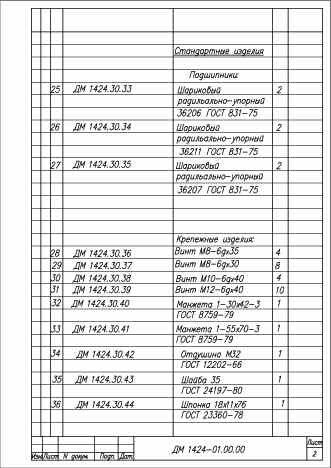 Стандартные изделия
Подшипники:
25 ДМ 1424.30.33 Шариковый 2
радиально-упорный
36206 ГОСТ 831-75
26 ДМ 1424.30.34 Шариковый 2
радиально-упорный
36211 ГОСТ 831-75
27 ДМ 1424.30.35 Шариковый 2
радиально-упорный
36207 ГОСТ 831-75
Крепежные изделия:
28 ДМ 1424.30.36 Винт М8-6gх35 4
29 ДМ 1424.30.37 Винт М8-6gх30 8
30 ДМ 1424.30.38 Винт М10-6gх40 4
31 ДМ 1424.30.39 Винт М12-6gх40 10
32 ДМ 1424.30.40 Манжета 1-30х42-3 1
ГОСТ 8759-79
33 ДМ 1424.30.41 Манжета 1-55х70-3 1
ГОСТ 8759-79
34 ДМ 1424.30.42 Отдушина М32 1
ГОСТ 12202-66
35 ДМ 1424.30.43 Шайба 35 1
ГОСТ 24197-80
36 ДМ 1424.30.44 Шпонка 18х11х76 1
ГОСТ 23360-78
ДМ 1424-01.00.00
Лист
2
Изм. Лист N докум. Подп. Дат.